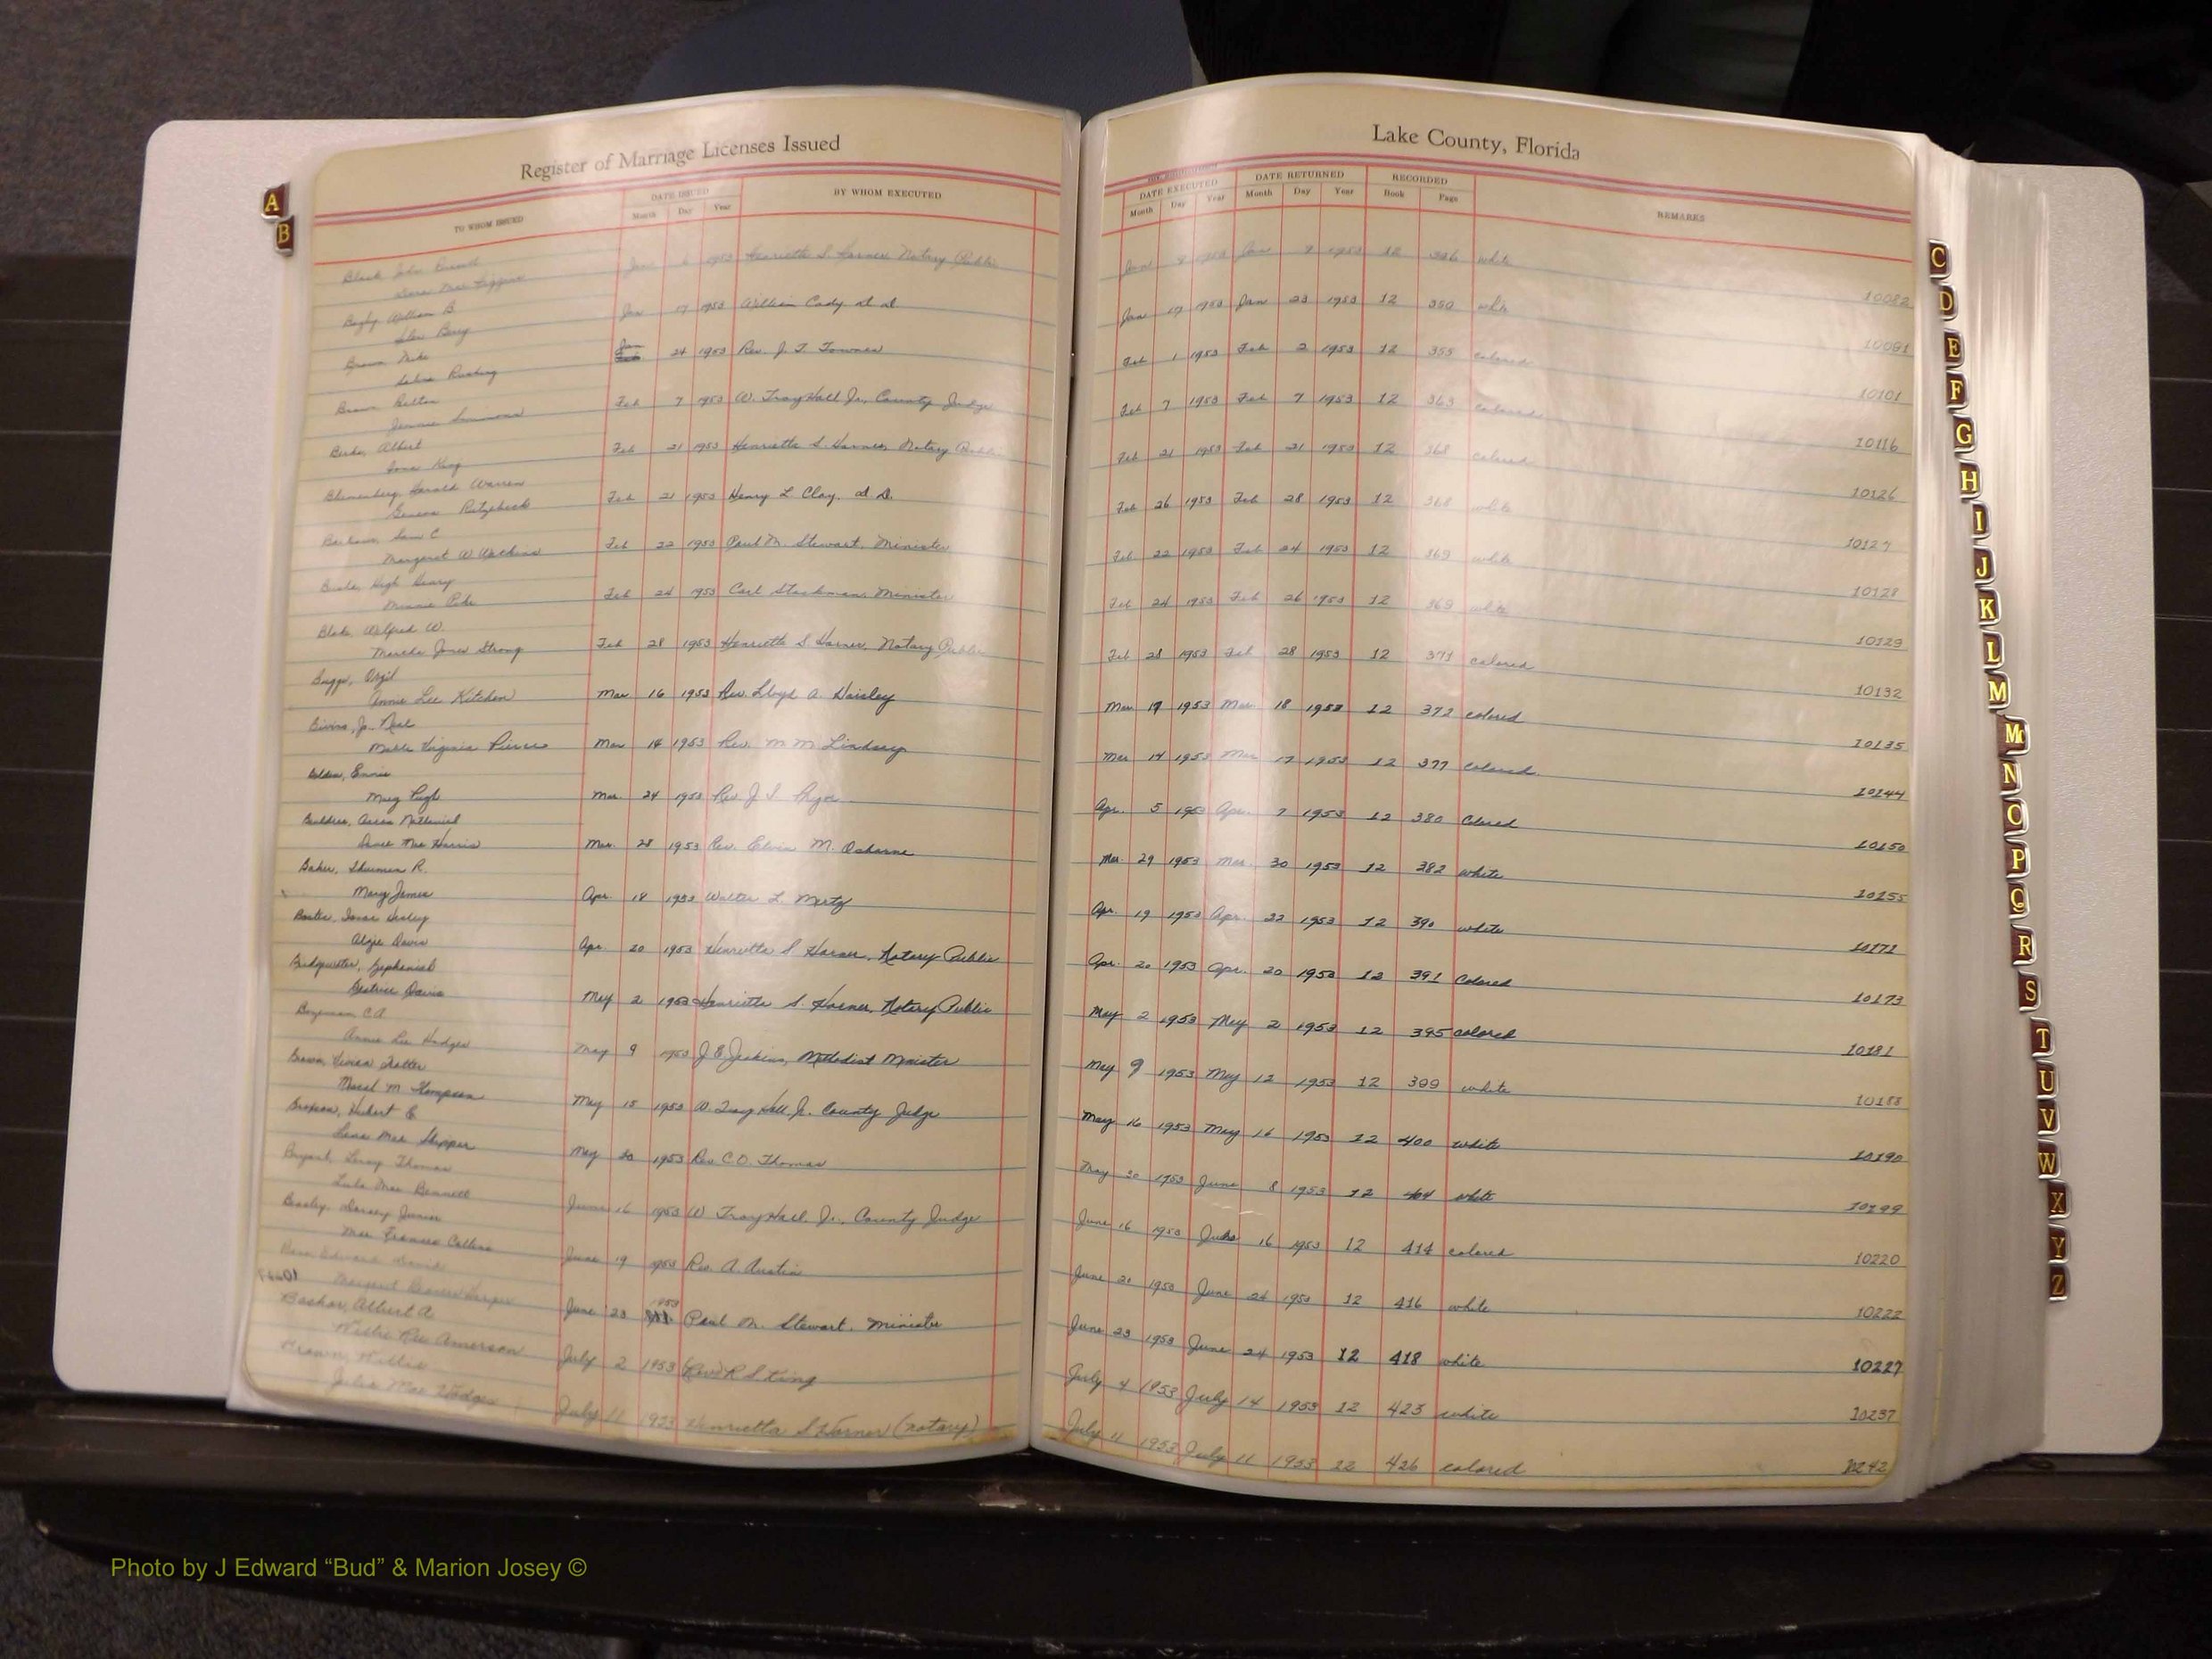 Register of Marriage Licenses Issued
TO WHOM ISSUED
DATE ISSUED
Month Day Year
BY WHOM EXECUTED
1953 Henrietta S. Harner Notary Public
Bagby William B.
Jan 17 1953 William Cady
Brown
Jan 24 1953 Rev. J. T.
Brown
Jennie Simmons
Feb 7 1953 W. Troy Hall Jr., County Judge
Albert
Iona King
Feb 21 1953 Henrietta S. Harner, Notary Public
Blumenberg, Harold Warren
Geneva
Feb 21 1953 Henry L. Clay.
Sam C
Margaret W. Watkins
Feb 22 1953 Paul M. Stewart, Minister
Henry
Minnie
Feb 24 1953 Carl Stackman, Minister
Blake Wilfred W.
Jones Strong
Feb 28 1953 Henrietta S. Harner, Notary Public
Buggs,
Annie Lee Kitchen
Mar 16 1953 Rev. Lloyd A. Haisley
Bivins, Jr. Neal
Mable Virginia Pierce
Mar 14 1953 Rev. M M Lindsey
Bolden, Ennis
Mary Pugh
Mar. 24 1953 Rev J. S.
Nathaniel
Mae Harris
Mar. 28 1953 Rev. Elvin M. Osborne
Baker, Shuman R.
Mary James
Apr. 18 1953 Walter L. Mertz
Davis
Apr. 20 1953 Henrietta S. Harner, Notary Public
Bridgewater, Zephaniah
Beatrice Davis
May 2 1953 Henrietta S. Harner, Notary Public
Bozeman C.A
Annie Lee Hodges
May 9 1953 J E Jenkins, Methodist Minister
Brown,
M. Thompson
May 15 1953 W. Troy Hall Jr. County Judge
Broxson, Hubert E.
Lena Mae Skipper
May 20 1953 Rev. C.O. Thomas
Bryant, Leroy Thomas
Lula Mae Bennett
June 16 1953 W Troy Hall, Jr., County Judge
Beasley, Dorsey Junior
Mae Frances Collins
June 19 1953 Rev. A. Austin
Edward David
Margaret
June 23 1953 Paul M. Stewart, Minister
Albert A.
Willie Rae Amerson
July 2 1953 (Rev) R S King
Brown, Willie
Julia Mae Hodges
July 11 1953 Henrietta S Harner (notary)
Lake County, Florida
DATE EXECUTED
Month Day Year
DATE RETURNED
Month Day Year
RECORDED
Book Page
REMARKS
Jan 9 1953 12 white 10082
Jan 17 1953 Jan 23 1953 12 350 white 10091
Feb 1 1953 Feb 2 1953 12 355 colored 10101
Feb 7 1953 Feb 7 1953 12 363 colored 10116
Feb 21 1953 Feb 21 1953 12 368 colored 10126
Feb 26 1953 Feb 28 1953 12 368 white 10127
Feb 22 1953 Feb 24 1953 12 369 white 10128
Feb 24 1953 Feb 26 1953 12 369 white 10129
Feb 28 1953 Feb 28 1953 12 371 colored 10132
Mar. 17 1953 Mar. 18 1953 12 372 colored 10135
Mar 14 1953 Mar 17 1953 12 377 colored. 10144
Apr. 5 1953 Apr. 7 1953 12 380 Colored 10150
Mar. 29 1953 Mar. 30 1953 12 382 white 10155
Apr. 19 1953 Apr. 22 1953 12 390 white 10171
Apr. 20 1953 Apr. 20 1953 12 391 Colored 10173
May 2 1953 May 2 1953 12 395 colored 10181
May 9 1953 May 12 1953 12 399 white 10188
May 16 1953 May 16 1953 12 400 white 10190
May 20 1953 June 8 1953 12 404 white 10199
June 16 1953 June 16 1953 12 414 colored 10220
June 20 1953 June 24 1953 12 416 white 10222
June 23 1953 June 24 1953 12 418 white 10227
July 4 1953 July 14 1953 12 423 white 10237
July 11 1953 July 11 1953 12 426 colored 10242
A
B
C
D
E
F
G
H
I
J
K
L
M
Mc
N
O
P
Q
R
S
T
U
V
W
X
Y
Z
Photo by J Edward “Bud” & Marion Josey ©